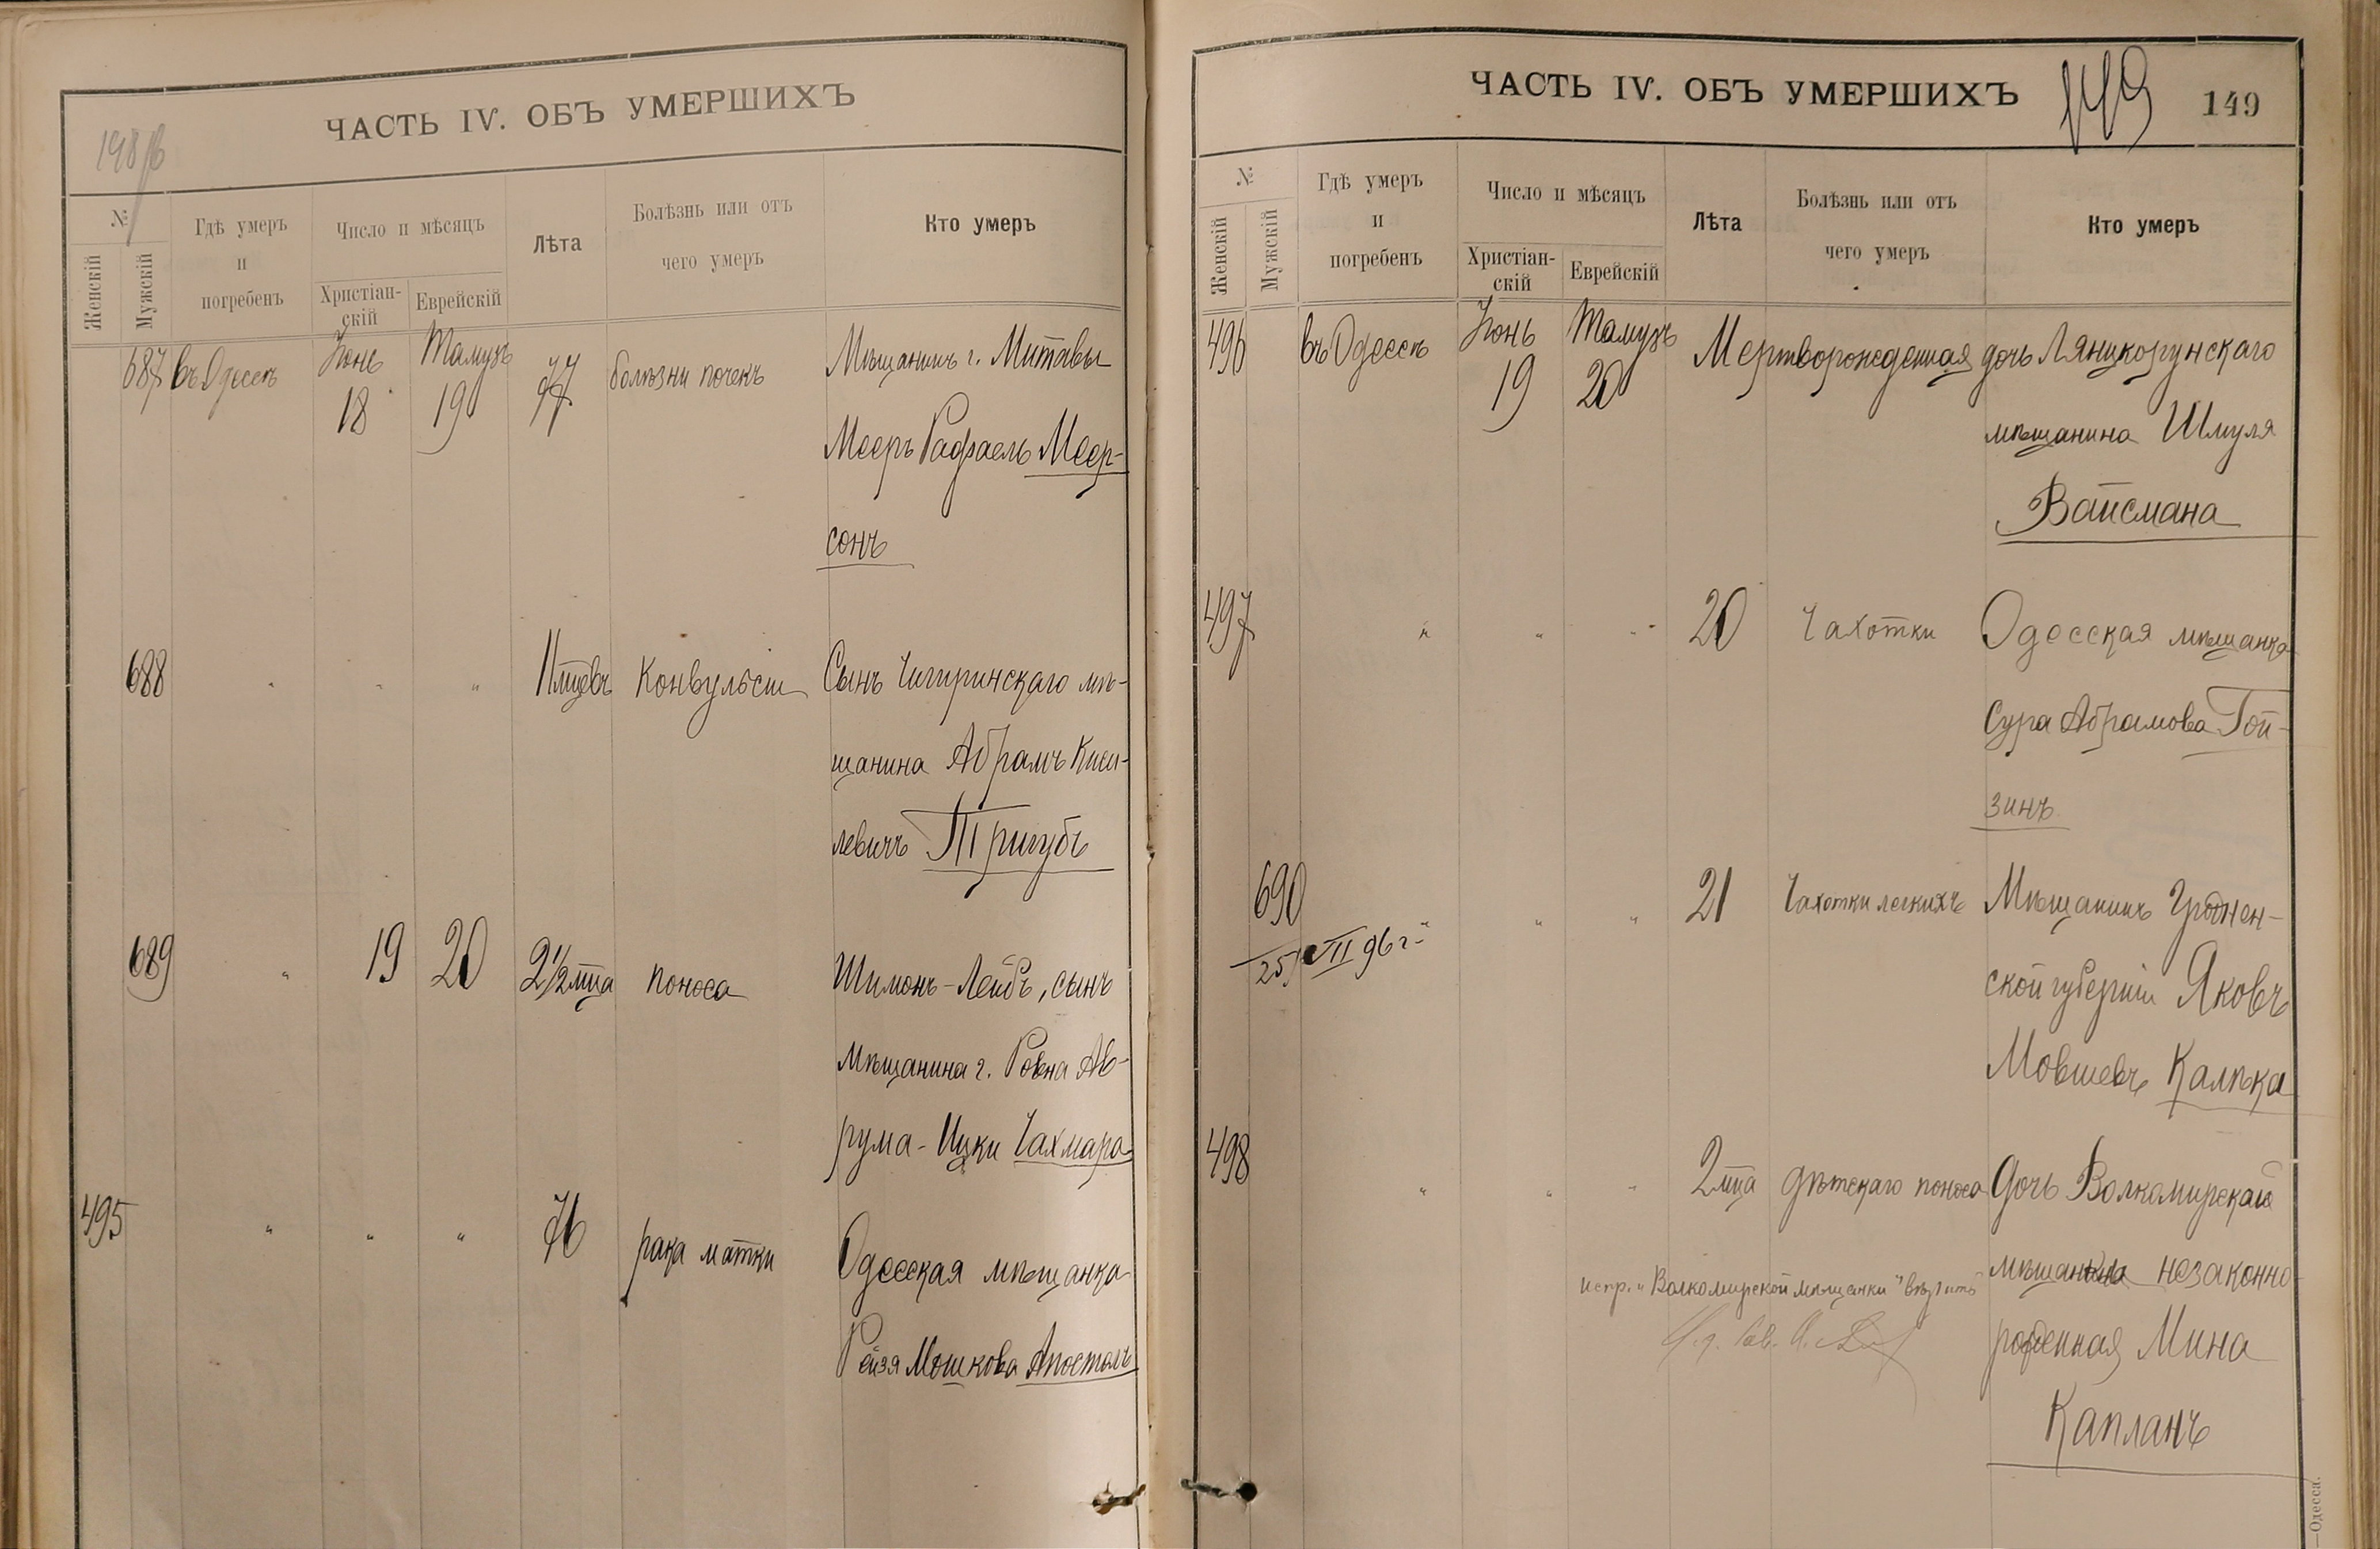 ЧАСТЬ IV. ОБЪ УМЕРШИХЪ
148 б
№
Женскій
Мужскій
Гдѣ умеръ
и
погребенъ
Число и мѣсяцъ
Христіан-
скій
Еврейскій
Лѣта
Болѣзнь или отъ
чего умеръ
Кто умеръ
687 въ Одессѣ Іюнь Тамузъ 77 болѣзни почекъ Мѣщанинъ г. Митавы
18 19
Мееръ Рафаель Меер-
сонъ
688 " " " 11 мцевъ Конвульсіи Сынъ Чигиринскаго мѣ-
щанина Абрамъ Киси-
левичъ Тригубъ
689 " 19 20 2 1/2 мца поноса Шимонъ-Лейбъ, сынъ
мѣщанина г. Ровна Ав-
рума-Ицки Чахмара
495 " " " 76 рака матки Одесская мѣщанка
Рейзя Мошкова Апостолъ
ЧАСТЬ IV. ОБЪ УМЕРШИХЪ
149
149
№
Женскій
Мужскій
Гдѣ умеръ
и
погребенъ
Число и мѣсяцъ
Христіан-
скій
Еврейскій
Лѣта
Болѣзнь или отъ
чего умеръ
Кто умеръ
496 въ Одессѣ Іюнь Тамузъ Мертворожденная дочь Лянцкорунскаго
19 20
мѣщанина Шмуля
Вайсмана
497 " " " 20 Чахотки Одесская мѣщанка
Сура Абрамова Гой-
зинъ
690 " " " 21 Чахотки легкихъ Мѣщанинъ Гроднен-
25 VII 96 г.
ской губерніи Яковъ
Мовшевъ Калѣка
498 " " " 2 мца дѣтскаго поноса Дочь Волкомирской
испр. "Волкомирской мѣщанки" вѣрить
мѣщанки незаконно-
рожденная Мина
Капланъ
—Одесса.